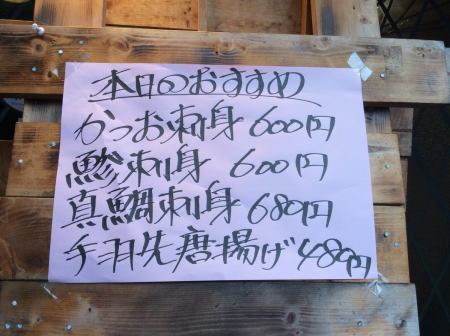 本日のおすすめ
かつお刺身 600円
鯵刺身 600円
真鯛刺身 680円
手羽先唐揚げ 480円